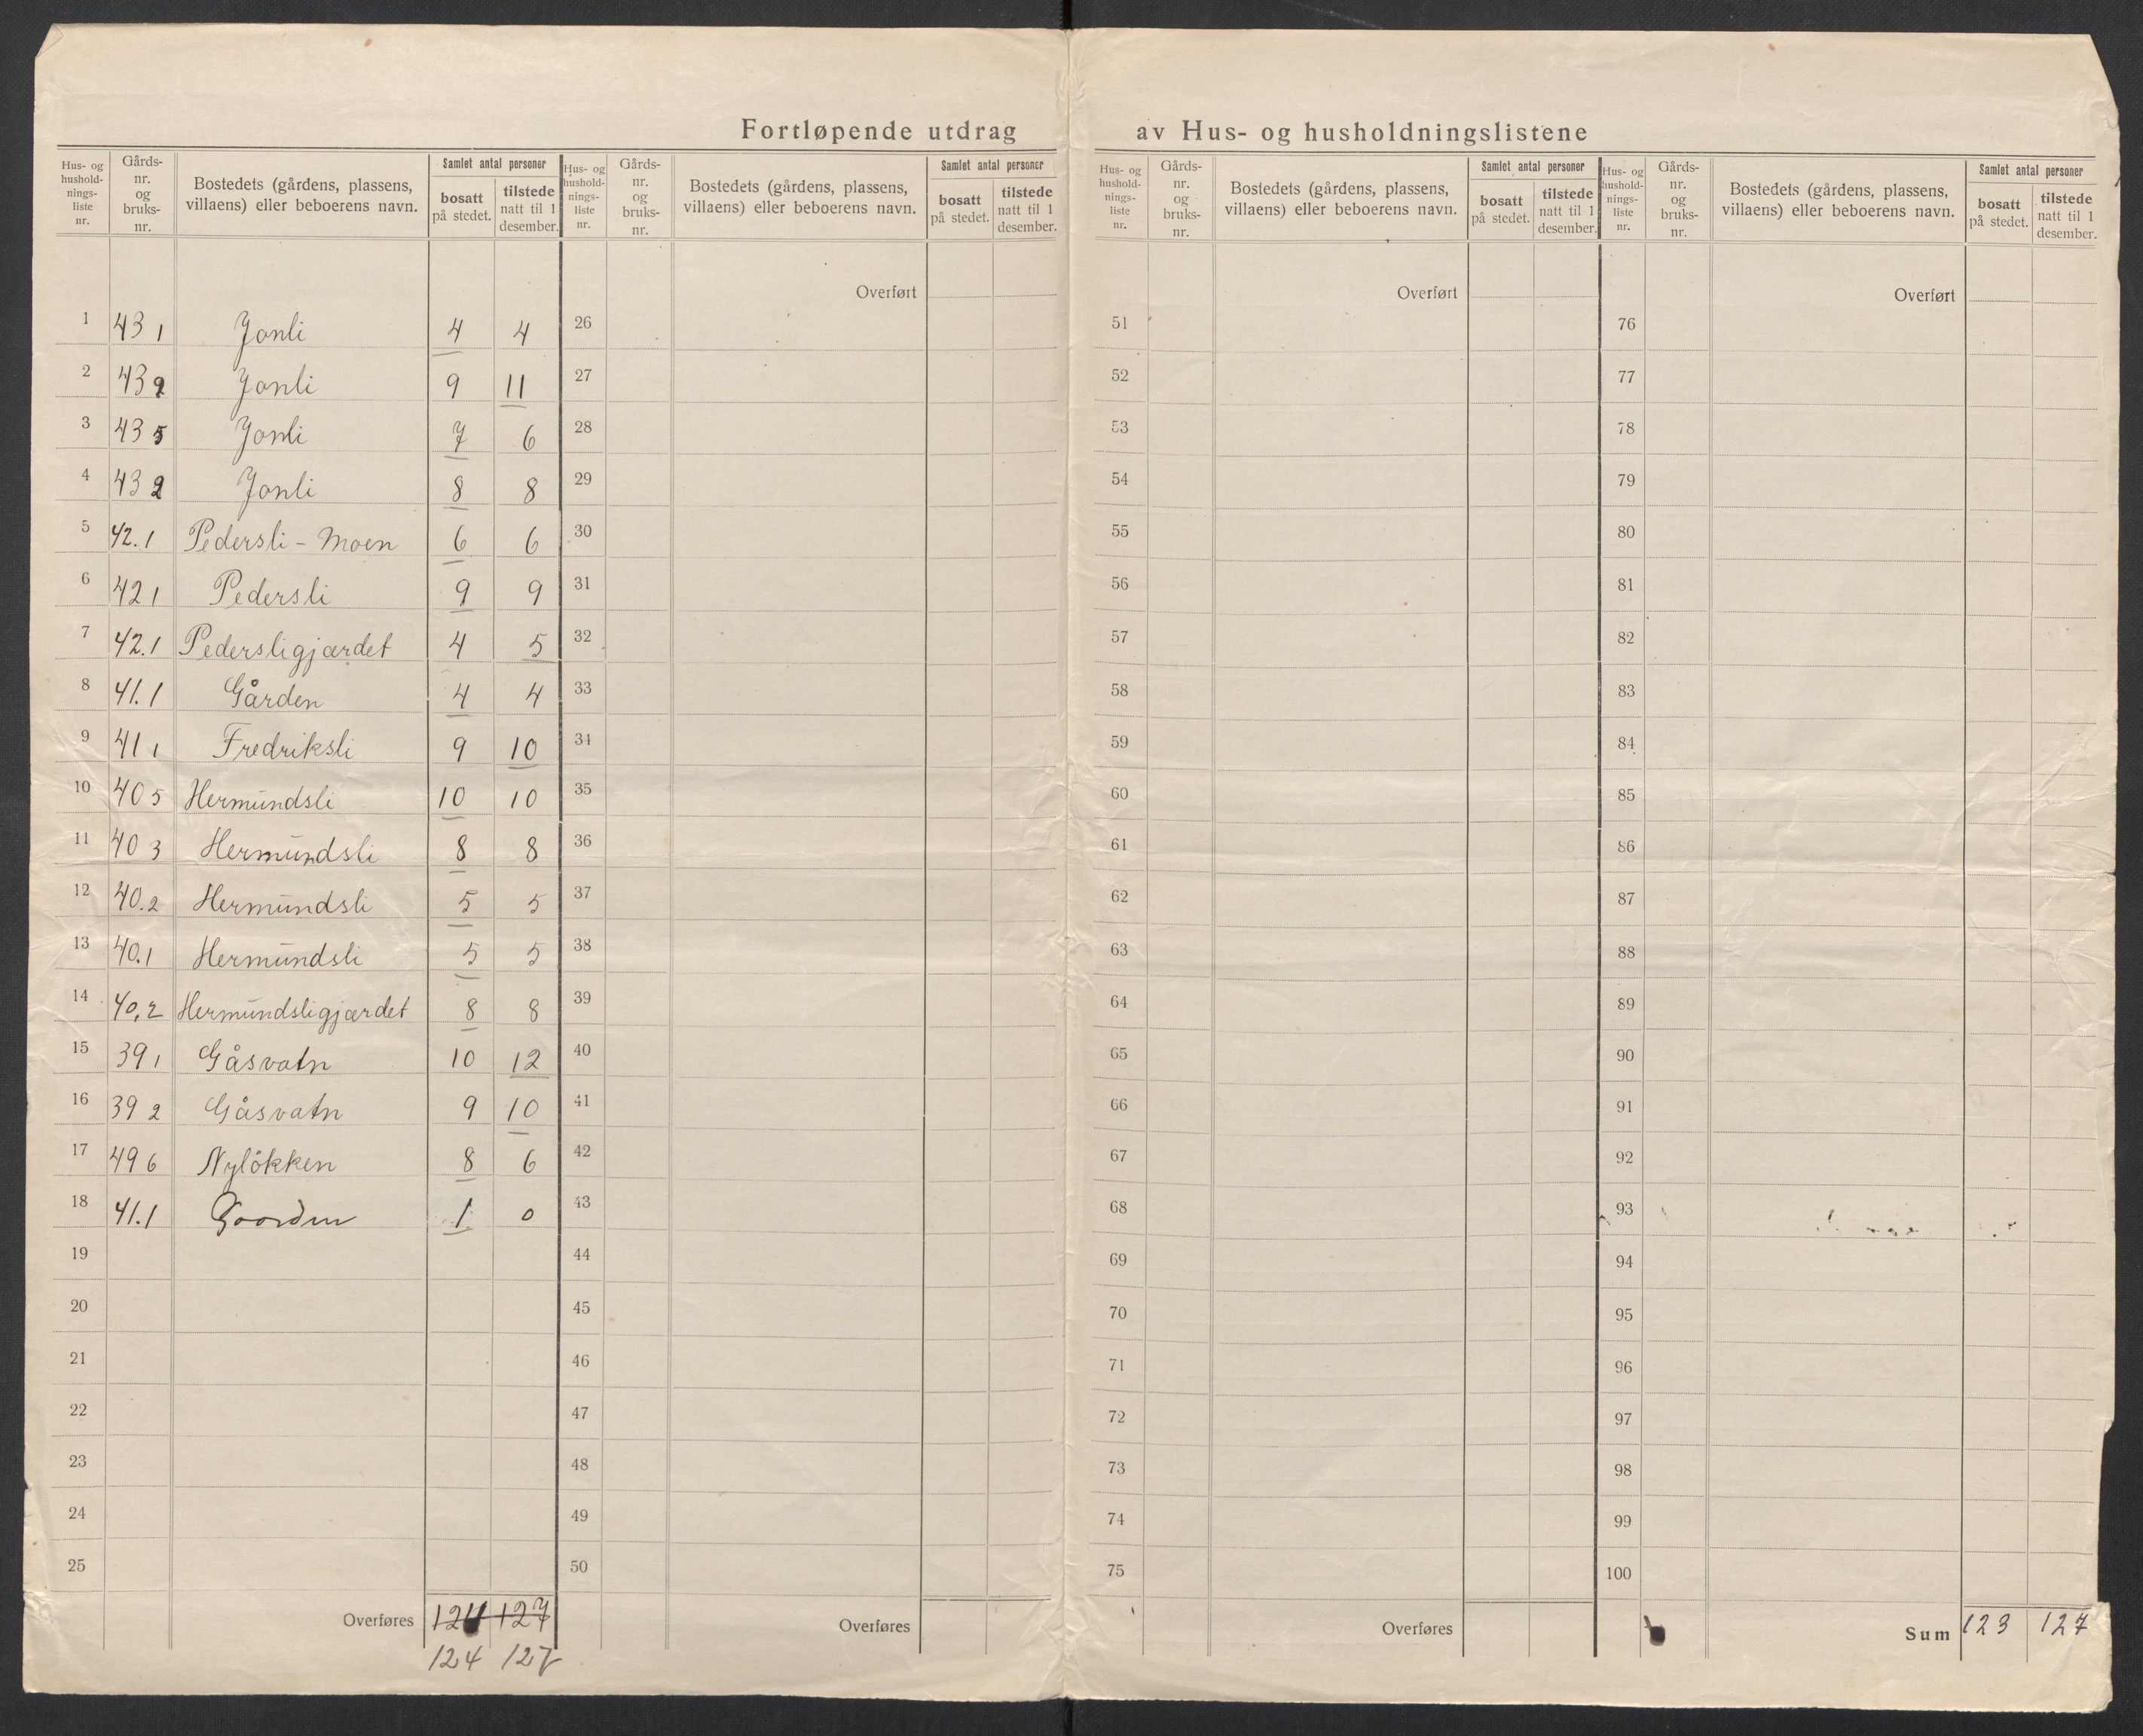 Fortløpende utdrag av Hus- og husholdningslistene
Hus- og husholdningsliste nr. | Gårds- nr. og bruks- nr. | Bostedets (gårdens, plassens, villaens) eller beboerens navn. | Samlet antal personer | bosatt på stedet. | tilstede natt til 1 desember.
1 43 1 Jonli 4 4
2 43 2 Jonli 9 11
3 43 5 Jonli 7 6
4 43 2 Jonli 8 8
5 42.1 Pedersli - Moen 6 6
6 42 1 Pedersli 9 9
7 42.1 Pedersligjærdet 4 5
8 41.1 Gården 4 4
9 41 1 Fredriksli 9 10
10 40 5 Hermundsli 10 10
11 40 3 Hermundsli 8 8
12 40.2 Hermundsli 5 5
13 40.1 Hermundsli 5 5
14 40,2 Hermundsligjærdet 8 8
15 39 1 Gåsvatn 10 12
16 39 2 Gåsvatn 9 10
17 49 6 Nylökken 8 6
18 41.1 Goorden 1 0
19
20
21
22
23
24
25
Overføres 124 127
124 127
Hus- og husholdningsliste nr. | Gårds- nr. og bruks- nr. | Bostedets (gårdens, plassens, villaens) eller beboerens navn. | Samlet antal personer | bosatt på stedet. | tilstede natt til 1 desember.
Overført
26
27
28
29
30
31
32
33
34
35
36
37
38
39
40
41
42
43
44
45
46
47
48
49
50
Overføres
Hus- og husholdningsliste nr. | Gårds- nr. og bruks- nr. | Bostedets (gårdens, plassens, villaens) eller beboerens navn. | Samlet antal personer | bosatt på stedet. | tilstede natt til 1 desember.
Overført
51
52
53
54
55
56
57
58
59
60
61
62
63
64
65
66
67
68
69
70
71
72
73
74
75
Overføres
Hus- og husholdningsliste nr. | Gårds- nr. og bruks- nr. | Bostedets (gårdens, plassens, villaens) eller beboerens navn. | Samlet antal personer | bosatt på stedet. | tilstede natt til 1 desember.
Overført
76
77
78
79
80
81
82
83
84
85
86
87
88
89
90
91
92
93
94
95
96
97
98
99
100
Sum 123 127